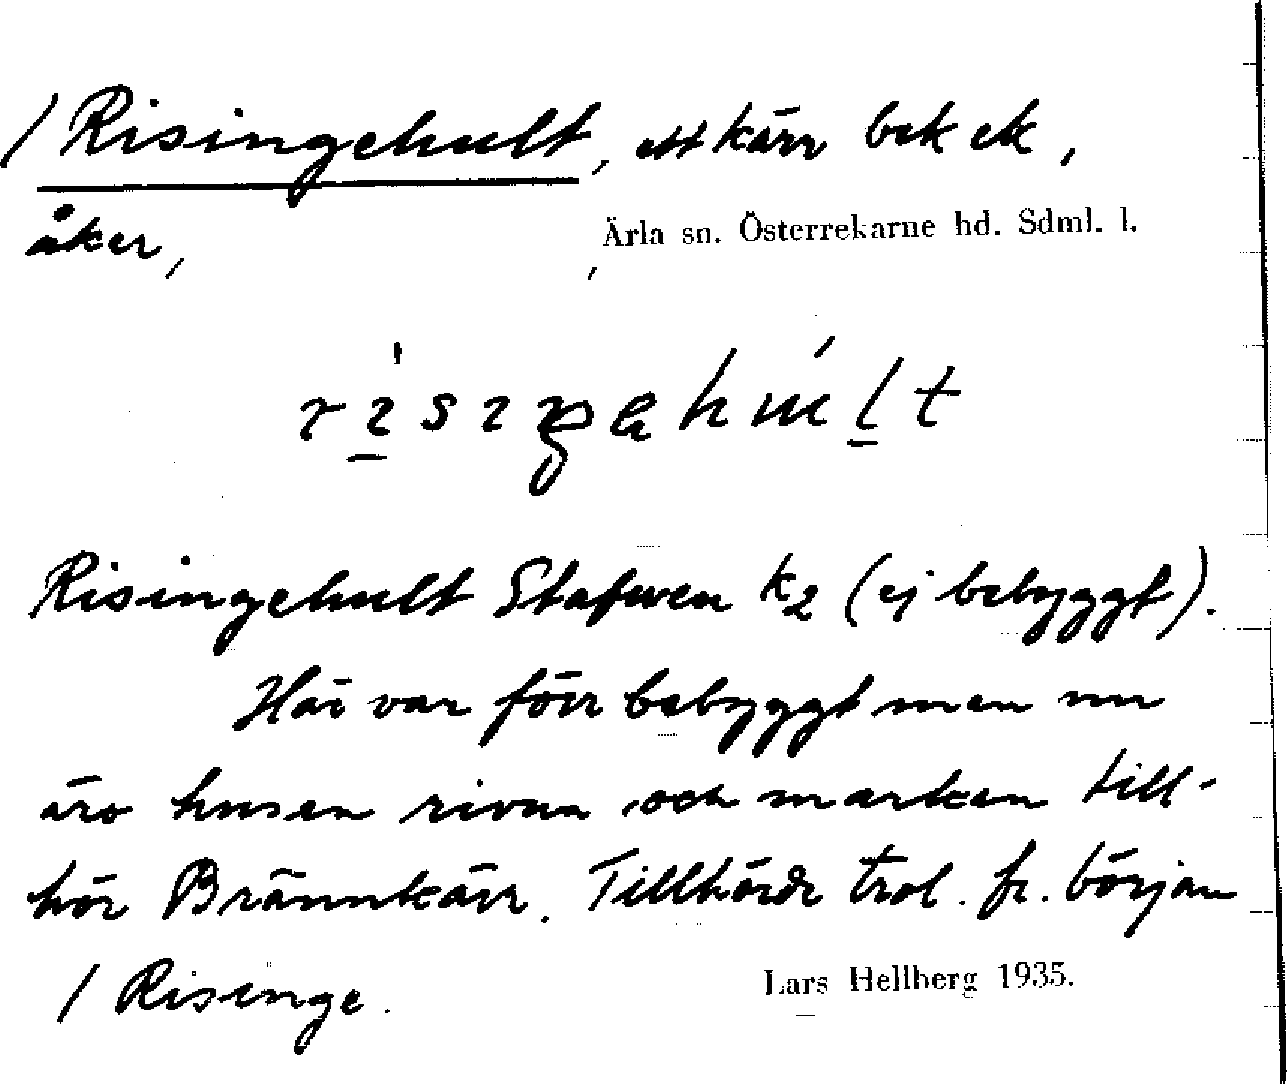 / Risingehult, ett kärr bek ek,
åker,
Ärla sn. Österrekarne hd. Sdml. l.
Risingehult Stafwen k2 (ej bebyggt).
Här var förr bebyggt men nu
äro husen rivna och marken till-
hör Brännkärr. Tillhörde trol. fr. början
/ Risinge.
Lars Hellberg 1935.